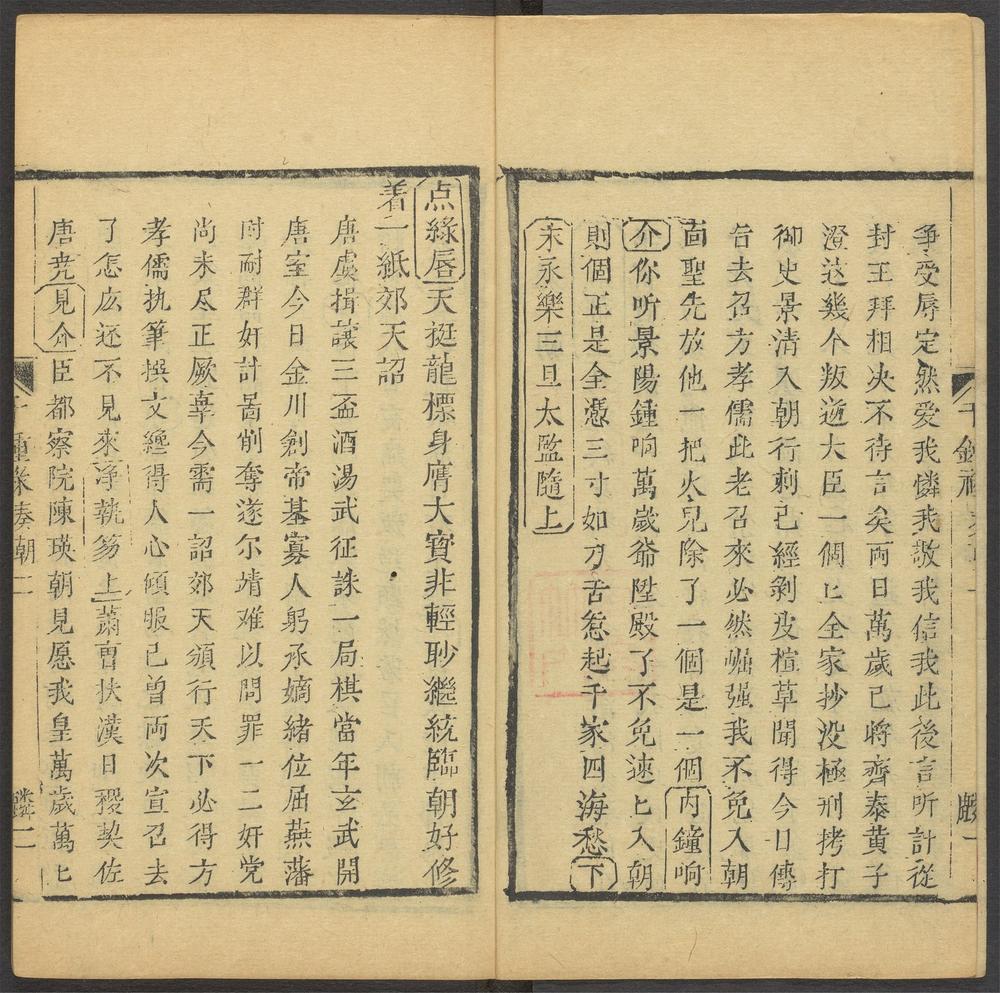 爭受辱定然爱我憐我敬我信我此後言听計從
封王拜相决不待言矣两日萬歲已將齊泰黄子
澄这幾个叛逆大臣一個匕全家抄没極刑拷打
御史景清入朝行刺已經剝皮楦草聞得今日傳
旨去召方孝儒此老召來必然崛强我不免入朝
面聖先放他一把火兒除了一個是一個内鐘响
介你听景陽鍾响萬歲爺陞殿了不免速匕入朝
則個正是全憑三寸如刀舌惹起千家四海愁下
末永樂三旦太監隨上
点絳唇天挺龍標身膺大寳非輕眇繼統臨朝好修
着一紙郊天詔
唐虞揖讓三盃酒湯武征誅一局棋當年玄武開
唐室今日金川創帝基寡人躬承嫡緒位届燕藩
时耐群奸計啚削奪遂尔靖难以問罪一二奸党
尚未尽正厥辜今需一詔郊天頒行天下必得方
孝儒执筆撰文纔得人心傾服已曾两次宣召去
了怎庅还不見來净執笏上蕭曹扶漢日稷契佐
唐尭見介臣都察院陳瑛朝見愿我皇萬歲萬匕